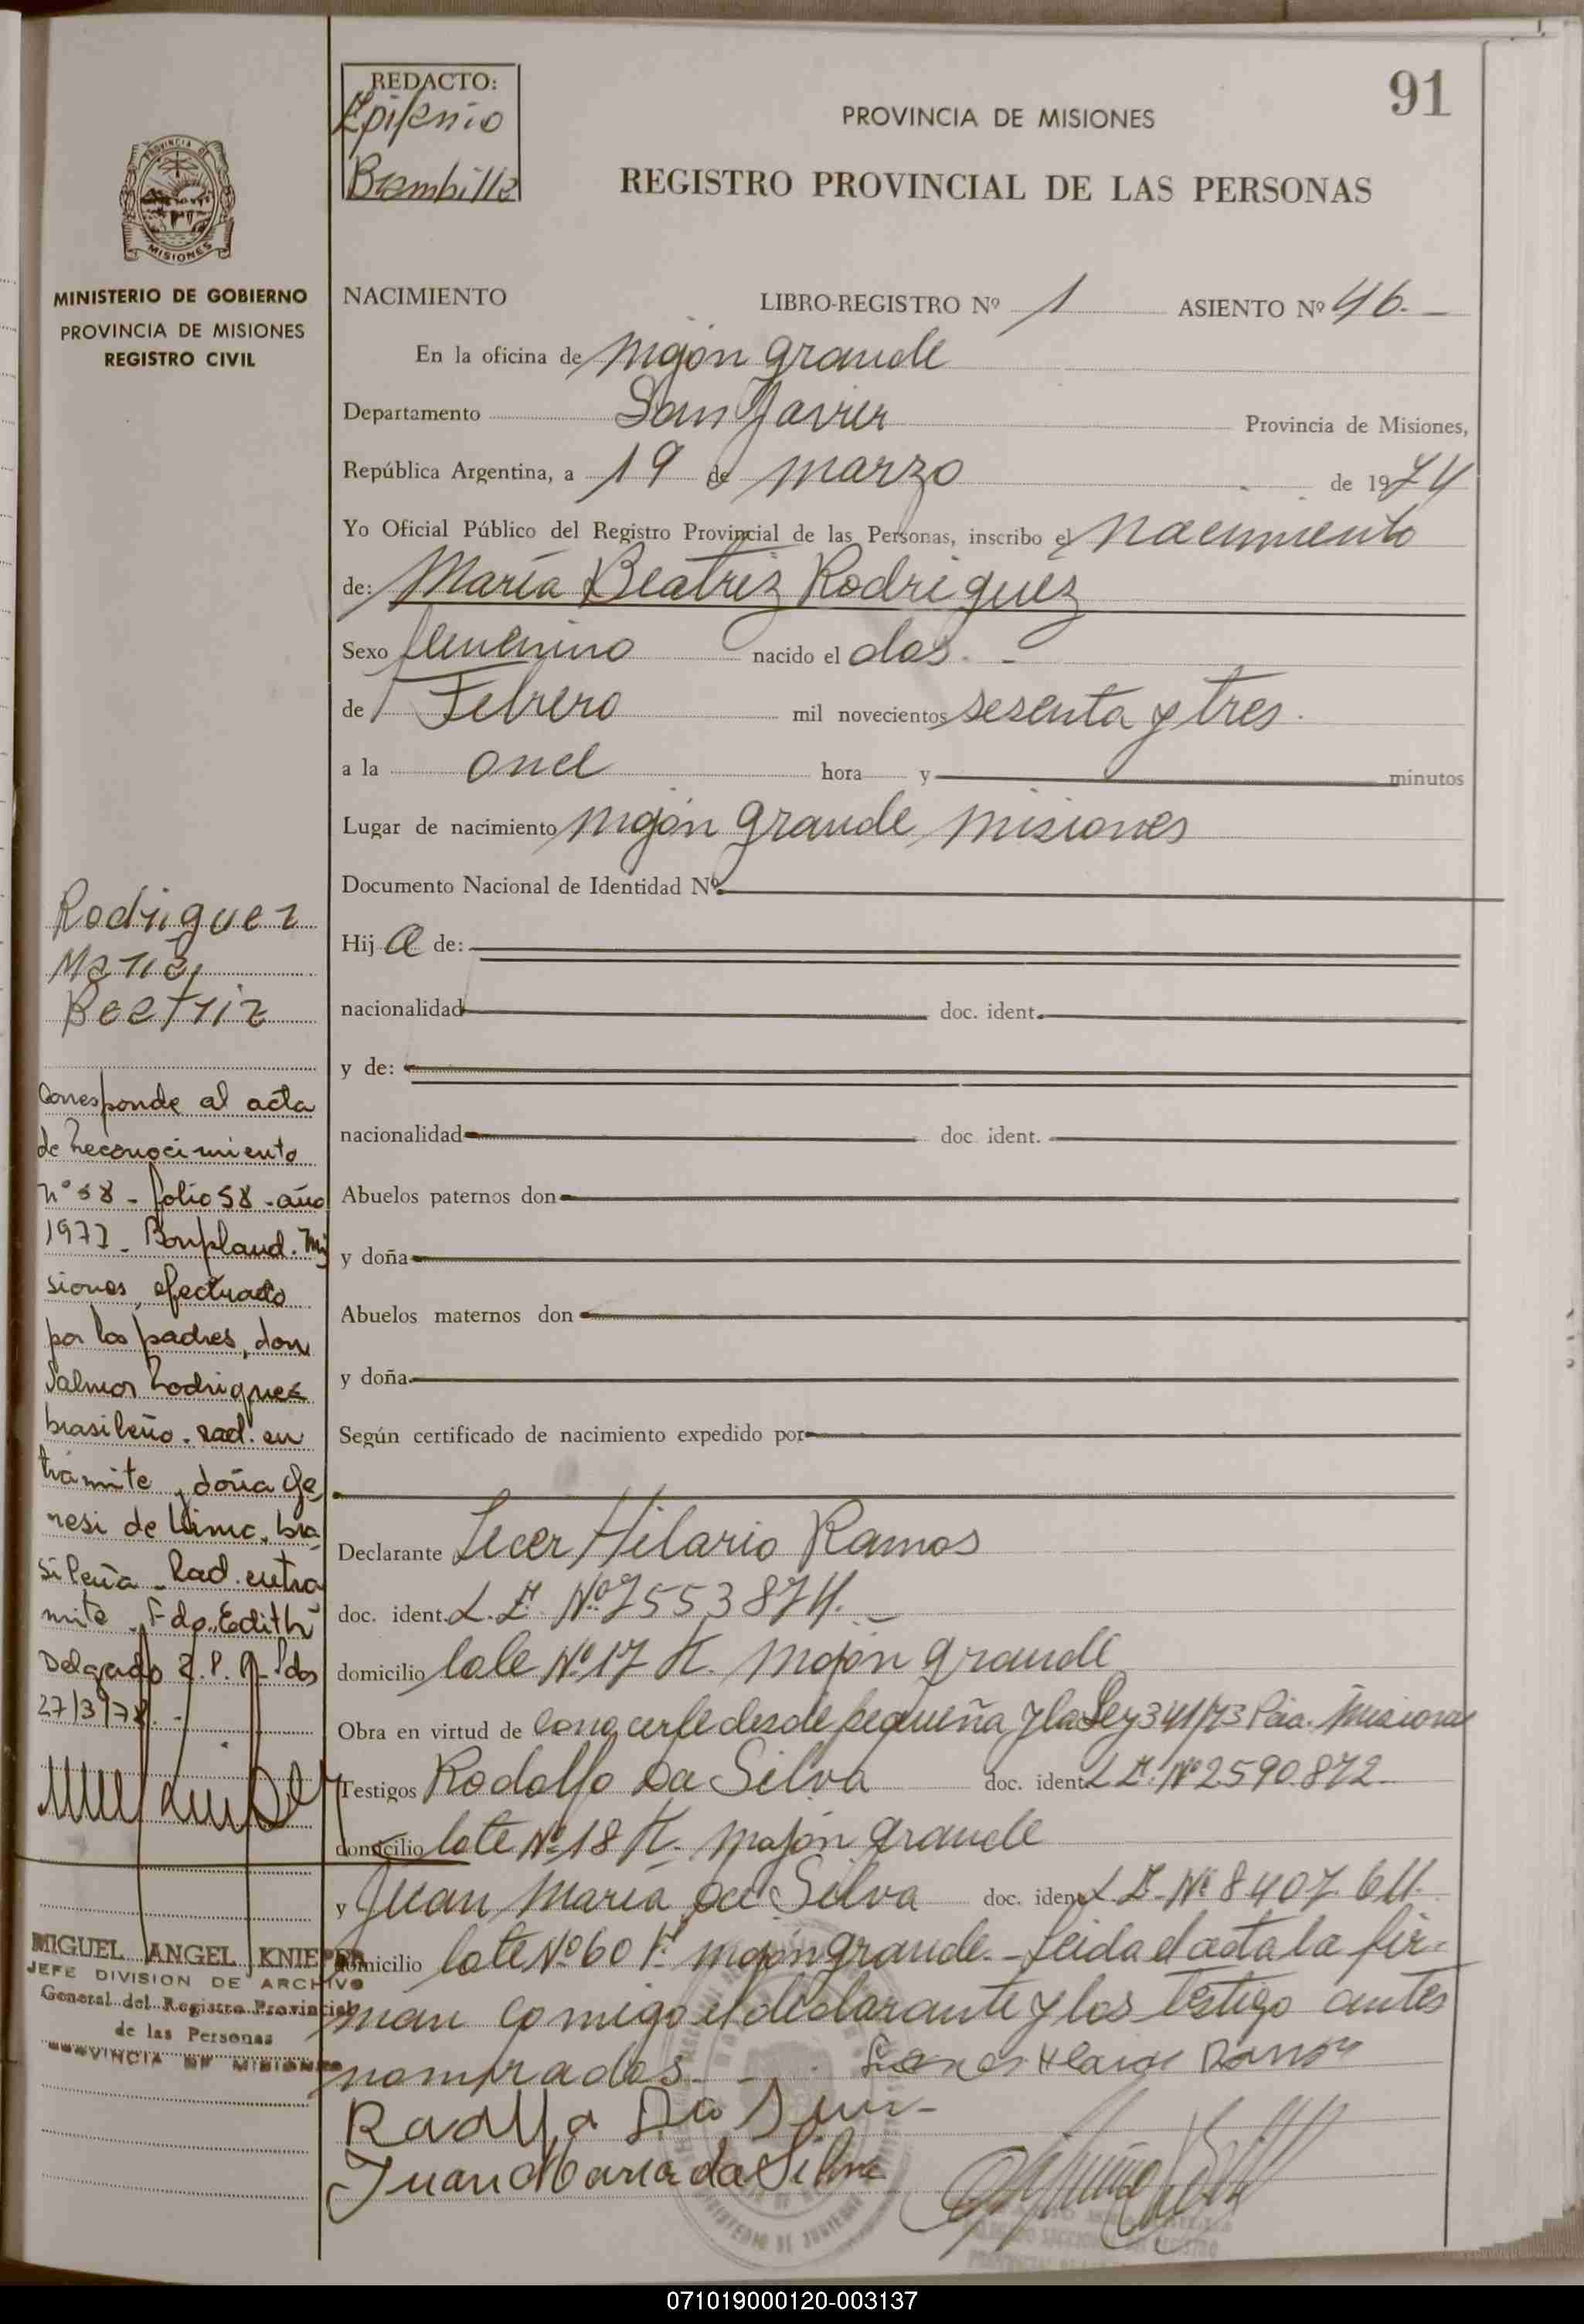 91
REDACTO:
Epifanio
Bombilla
PROVINCIA DE MISIONES
REGISTRO PROVINCIAL DE LAS PERSONAS
PROVINCIA DE
MISIONES
MINISTERIO DE GOBIERNO
PROVINCIA DE MISIONES
REGISTRO CIVIL
NACIMIENTO LIBRO-REGISTRO Nº 1 ASIENTO Nº 46.-
En la oficina de Mojón grande
Departamento San Javier Provincia de Misiones,
República Argentina, a 19 de marzo de 1974
Yo Oficial Público del Registro Provincial de las Personas, inscribo el nacimiento
de: María Beatriz Rodriguez
Sexo femenino nacido el dos.-
de Febrero mil novecientos sesenta y tres.
a la once hora y minutos
Lugar de nacimiento Mojón grande Misiones
Documento Nacional de Identidad Nº
Hija de:
nacionalidad doc. ident.
y de:
nacionalidad doc. ident.
Abuelos paternos don
y doña
Abuelos maternos don
y doña
Según certificado de nacimiento expedido por
Declarante Hilario Ramos
doc. ident. L.E. Nº 7553874.-
domicilio lote Nº 17 Mojón grande
Obra en virtud de conocerle desde pequeña y la Ley 341/73 Pcia. Misiones
Testigos Rodolfo Da Silva doc. ident. L.E. Nº 2590.872.
domicilio lote Nº 18 Mojón grande
y Juan María Da Silva doc. ident L.E. Nº 8407.611.
domicilio lote Nº 60 Mojón grande.- Leida el acta la fir-
man comigo el declarante y los testigo antes
nombrados.-
Juan Maria da Silva
Rodriguez
Maria
Beatriz
Corresponde al acta
de reconocimiento
nº 58 - folio 58 - año
1977 - Bonpland. Mi
siones, efectuado
por los padres, don
Rodriguez
brasileño. rad. en
trámite y doña Ge
nesi de Lima, bra
sileña - Rad. en trá
mite. Fdo. Edith
Delgado
27/3/78.-
MIGUEL ANGEL KNIEPER
JEFE DIVISION DE ARCHIVO
General del Registro Provincial
de las Personas
PROVINCIA DE MISIONES
071019000120-003137